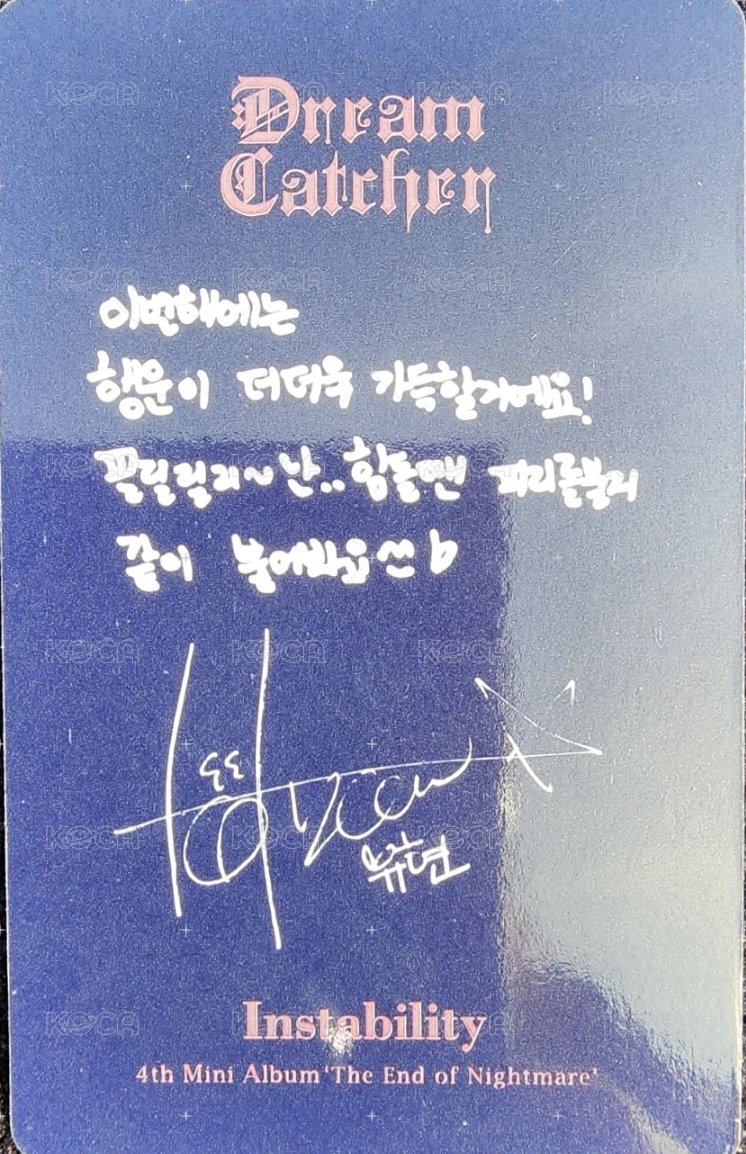 Dream
Catcher
이번해에는
행운이 더더욱 가득할거에요!
필릴릴리~ 난.. 힘들땐 피리를불지
같이 불어봐요 b
유현
Instability
4th Mini Album 'The End of Nightmare'
KOCA